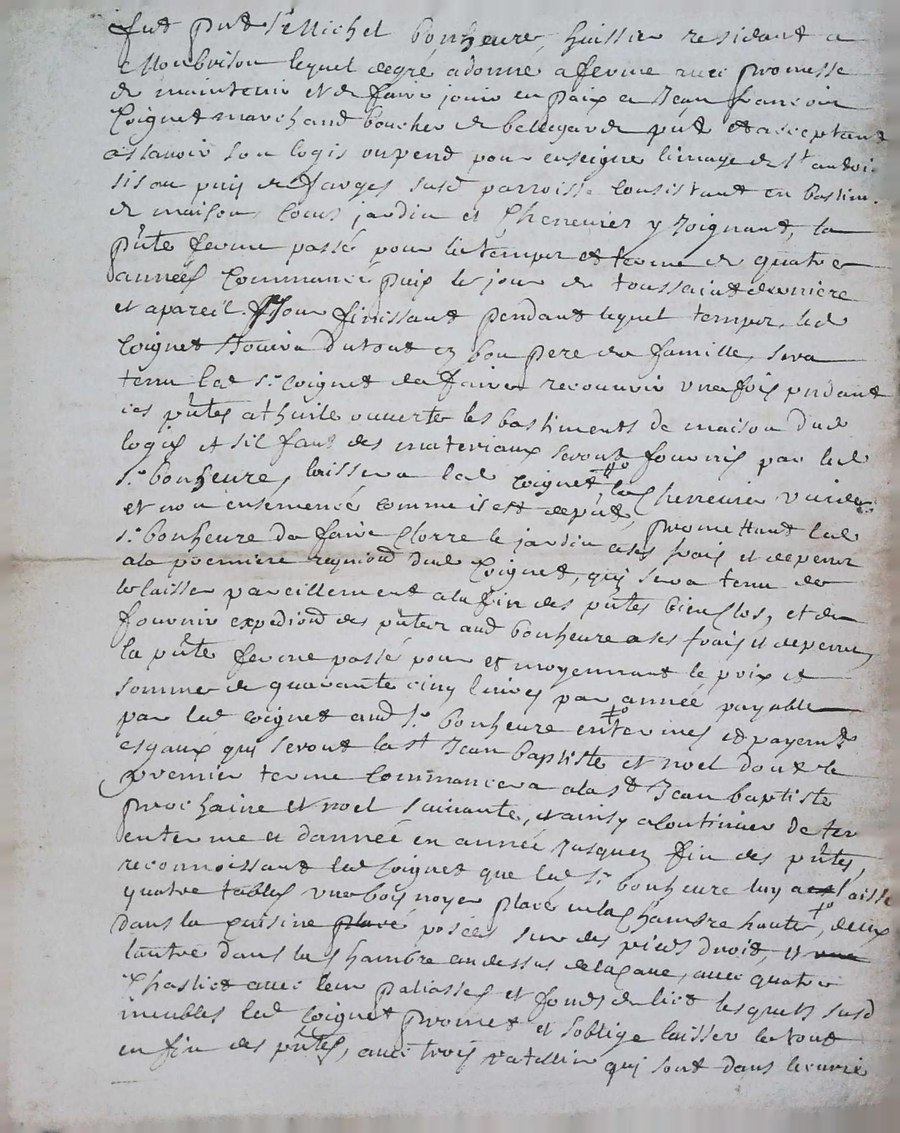 fut pnt Sr Michel bonheure, huissier residant a
Montbrison lequel de gre a donne a ferme avec promesse
de maintenir et de faire jouir en paix a Jean francois
Coignet marchand boucher de bellegarde pnt et acceptant
assavoir son logis ou pend pour enseigne limage de St antoi
sis au puij de farges susd parroisse Consistant en bastim.
de maison, Cour, jardin et Chenevier y Joignant, la
pnte ferme passé pour le temps et terme de quatre
années Commancé puis le jour de toussaint derniere
et a pareil Jour finissant pendant lequel temps, led
Coignet Jouira du tout en bon pere de famille, sera
tenu led Sr Coignet de faire recouvrir une fois pendant
ces pntes a thuile ouverte les bastiments de maison dud
logis et sil faut des materiaux seront fournis par led
Sr bonheure, laissera led Coignet, la Chenevier vuide
et non ensemencé comme il est depnt, promettant led
Sr bonheure de faire Clorre le jardin a ses frais et depens
a la premiere requiond dud Coignet, qui sera tenu de
le laisser pareillement a la fin des pntes bien Clos, et de
fournir expediond des pntes aud bonheure a ses frais et depens
la pnte ferme passé pour et moyennant le prix et
somme de quarante cinq livres par année payable
par led Coignet aud Sr bonheure en termes et payemts
esgaux qui seront la St Jean baptiste et noel dont le
premier terme Commancera a la St Jean baptiste
prochaine et noel suivante, et ainsy a Continuer de ter
en terme et dannée en année Jusques fin des pntes,
reconnoissant led Coignet que led Sr bonheure luy a laissé
quatre tables une bois noyer placé en la Chambre haute, deux
dans la cuisine placé posées sur des pieds droit, et une
lautre dans la Chambre au dessus de la Cave, avec quatre
Chaslict avec leur paliasses et fonds de lict lesquels susd
meubles led Coignet promet et soblige laisser le tout
en fin des pntes, avec trois ratellier qui sont dans lecurie